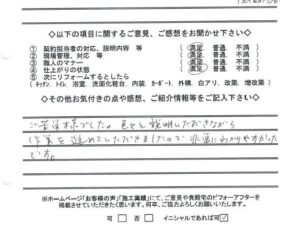 ◇以下の項目に関するご意見、ご感想をお聞かせ下さい◇
① 契約担当者の対応、説明内容 等 満足 普通 不満
② 現場管理、対応 等 満足 普通 不満
③ 職人のマナー 満足 普通 不満
④ 仕上がりの状態 満足 普通 不満
⑤ 次にリフォームするとしたら
(キッチン、トイレ、浴室、洗面化粧台、内装、カーポート、外構、白アリ、改築、増改築)
◇その他お気付きの点や感想、ご紹介情報等をご記入下さい◇
ご苦労様でした。色々と説明いただきながら
作業を進めていただきましたので非常にわかりやすかった
です。
※ホームページ「お客様の声」「施工実績」にて、ご意見や貴殿宅のビフォーアフターを
掲載させていただきたく思います。何卒、ご協力よろしくお願いいたします。
可 否 イニシャルであれば可